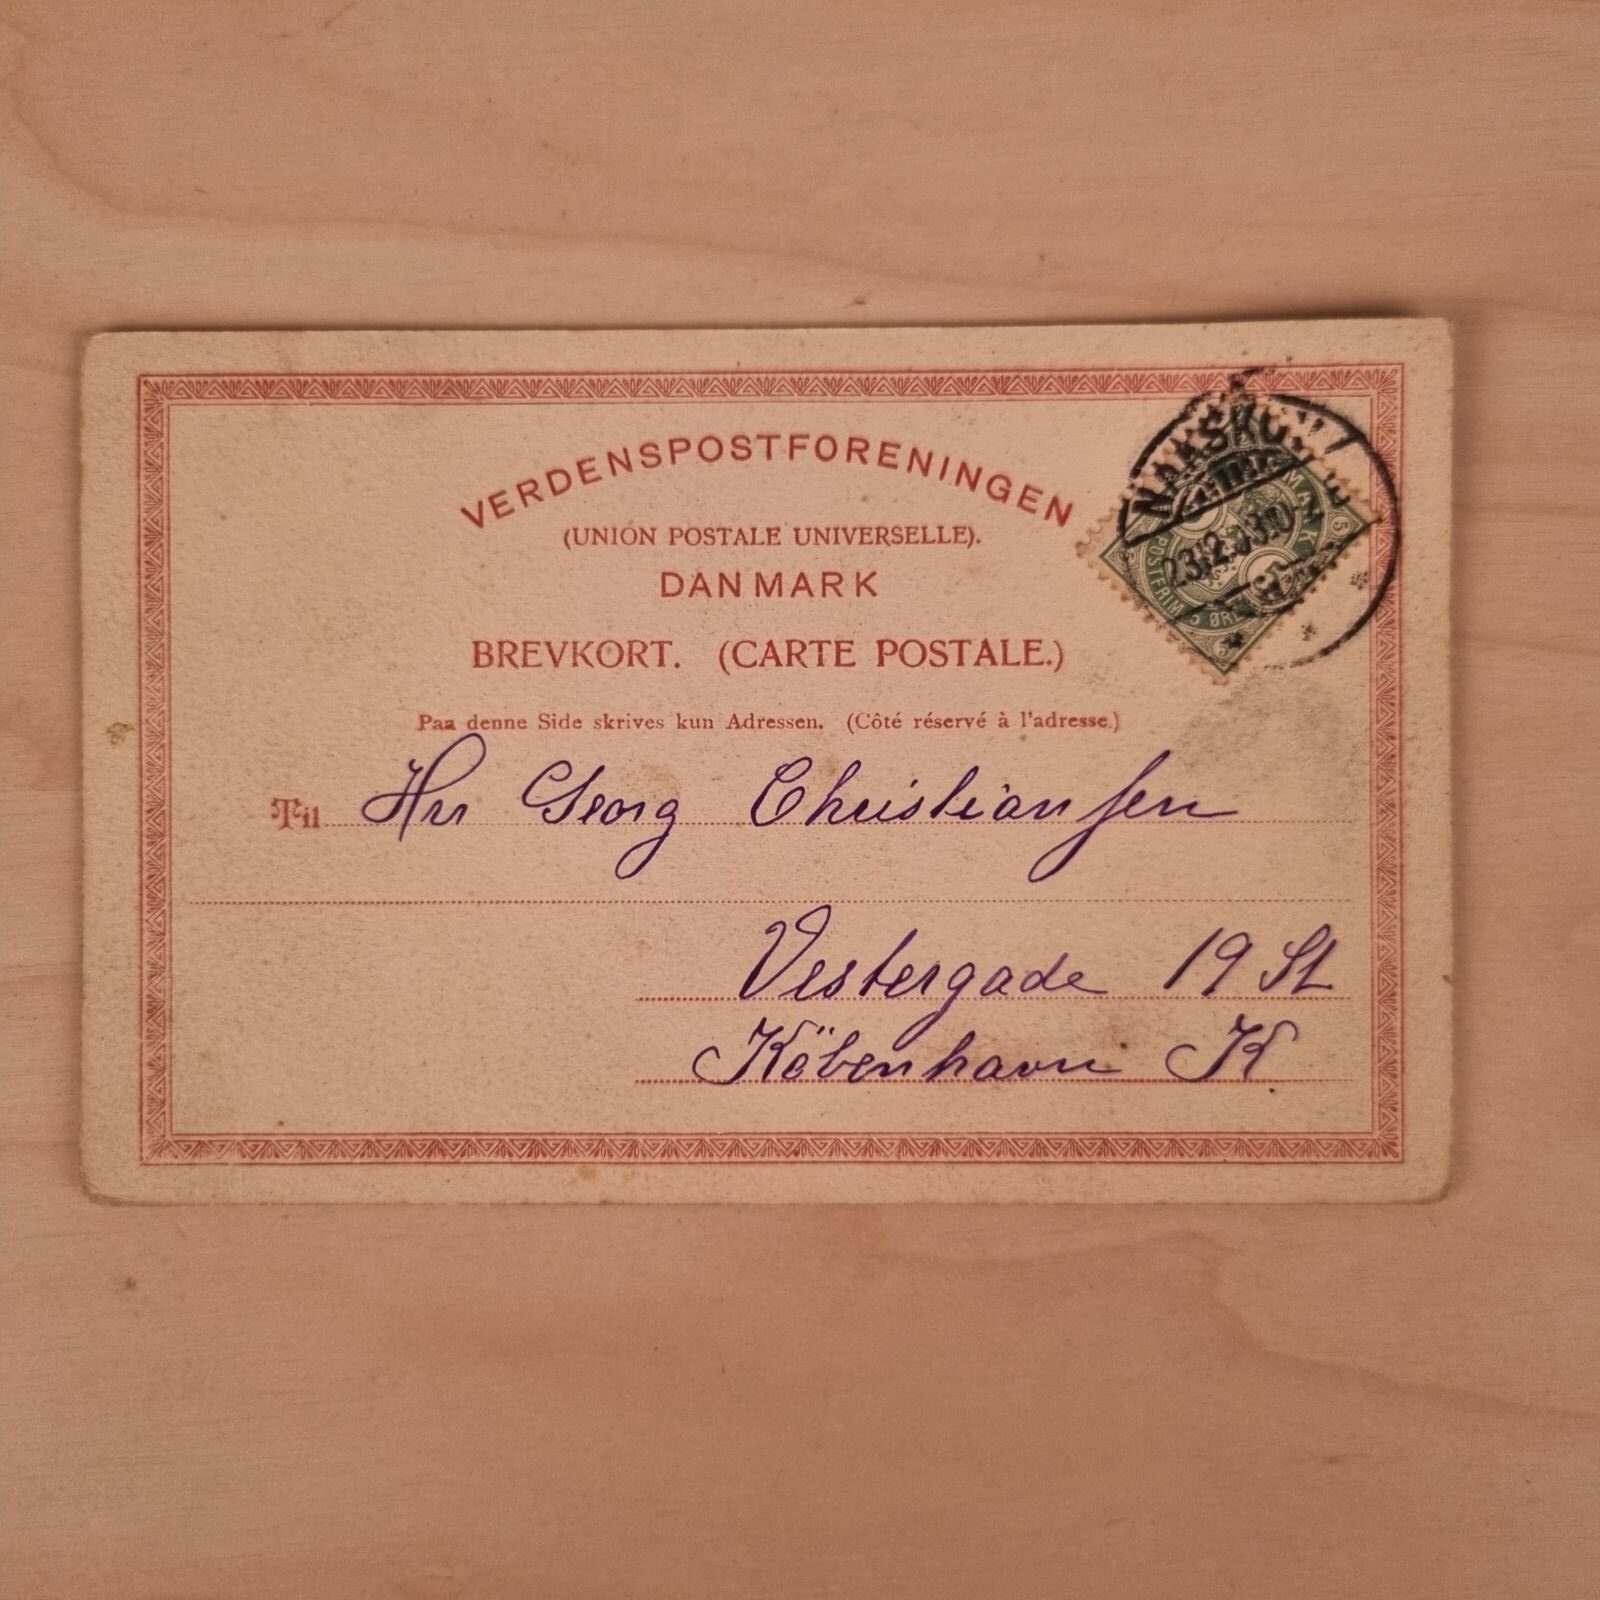 VERDENSPOSTFORENINGEN
(UNION POSTALE UNIVERSELLE).
DANMARK
BREVKORT. (CARTE POSTALE.)
Paa denne Side skrives kun Adressen. (Côté réservé à l'adresse.)
Til Hr Georg Christiansen
Vestergade 19 St
Köbenhavn K.
NAKSKOV
23.12.03
POSTFRIM 5 ØRE